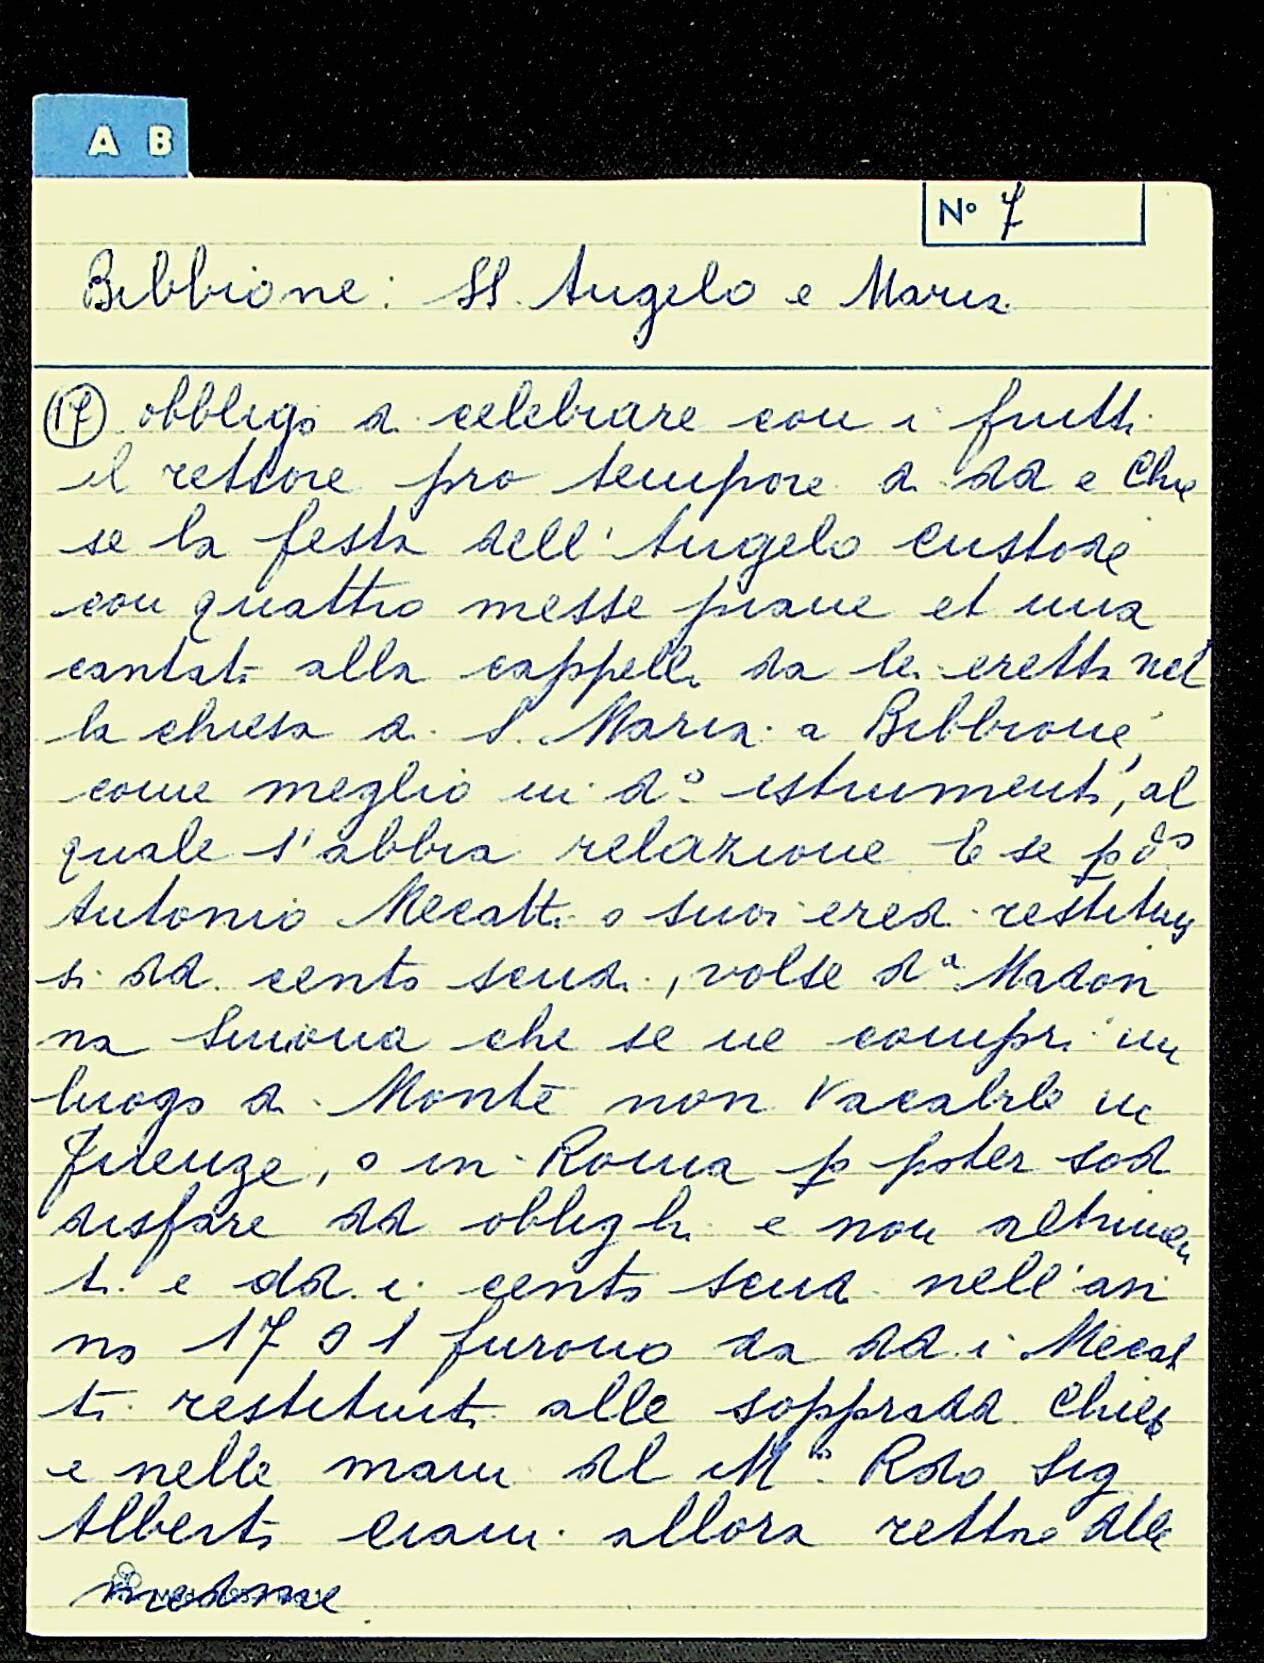 A B
N° 7
Bibbione: SS. Angelo e Maria
(17) obbligo di celebrare con i frutti
il rettore pro tempore di dd e Chie
se la festa dell'Angelo Custode
con quattro messe piane et una
cantata alla cappella da lei eretta nel
la chiesa di S. Maria a Bibbione,
come meglio in d° istrumento, al
quale s'abbia relazione E se p d°
Antonio Mecatti o suoi eredi restituis
si dd. cento scudi, volse dª Madon
na Simona che se ne compri un
luogo di Monte non vacabile in
Firenze, o in Roma p poter sod
disfare dd oblighi e non altrimen
ti e dd. i cento scudi nell'an
no 1701 furono da dd i Mecat
ti restituiti alle soppradd. Chiese
e nelle mani del M° Rdo Sig
Alberto allora rettore delle
medesime